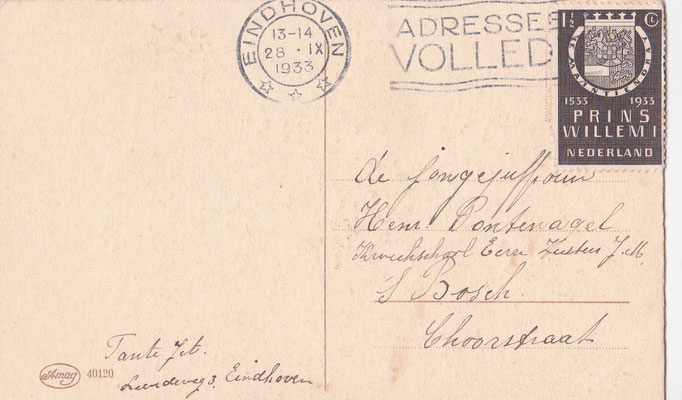 EINDHOVEN
13-14
28 · IX
1933
ADRESSE
VOLLED
1½ Ct
JE MAINTIENDRAY
1533 1933
PRINS
WILLEM I
NEDERLAND
de jongejuffrouw
Henr. Pontenagel
Kweekschool Eerw Zusters J.M.
S Bosch.
Choorstraat
Tante Jet.
Leendeweg 3. Eindhoven
Amag 40120